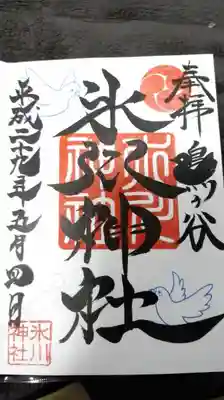 奉拝 鳩ヶ谷
氷川神社
平成二十九年五月四日
氷川
神社